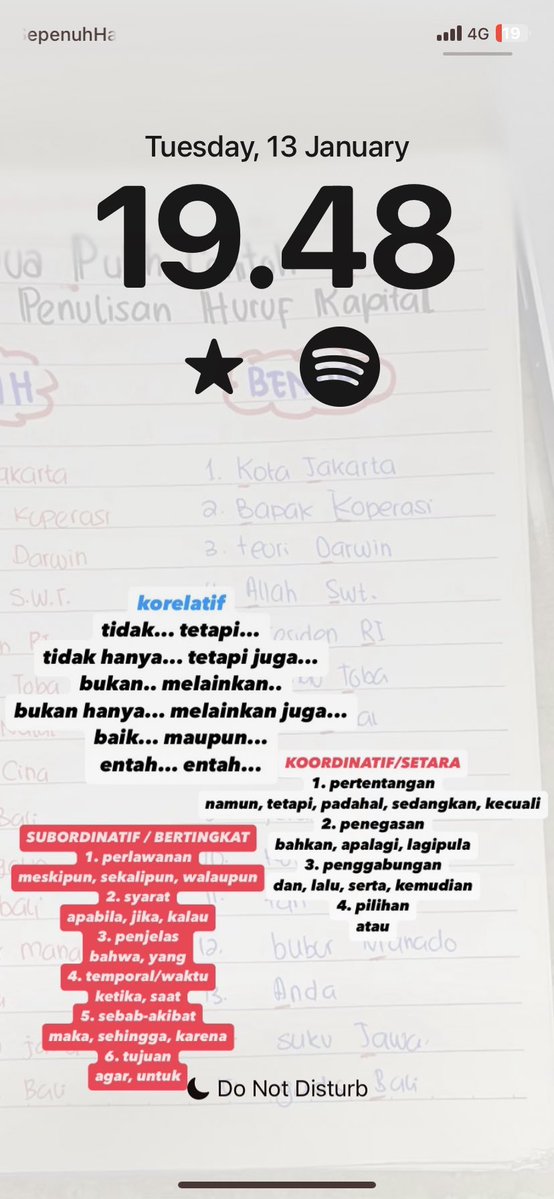 4G 19
Tuesday, 13 January
19.48
Penulisan Huruf Kapital
1. Kota Jakarta
2. Bapak Koperasi
3. teori Darwin
Darwin
S.W.T.
Allah Swt.
RI
Toba
Toba
korelatif
tidak... tetapi...
tidak hanya... tetapi juga...
bukan.. melainkan..
bukan hanya... melainkan juga...
baik... maupun...
entah... entah...
Cina
KOORDINATIF/SETARA
1. pertentangan
namun, tetapi, padahal, sedangkan, kecuali
2. penegasan
bahkan, apalagi, lagipula
3. penggabungan
dan, lalu, serta, kemudian
4. pilihan
atau
SUBORDINATIF / BERTINGKAT
1. perlawanan
meskipun, sekalipun, walaupun
2. syarat
apabila, jika, kalau
3. penjelas
bahwa, yang
4. temporal/waktu
ketika, saat
5. sebab-akibat
maka, sehingga, karena
6. tujuan
agar, untuk
12. bubur Manado
13. Anda
suku Jawa.
Bali
Do Not Disturb
Bali